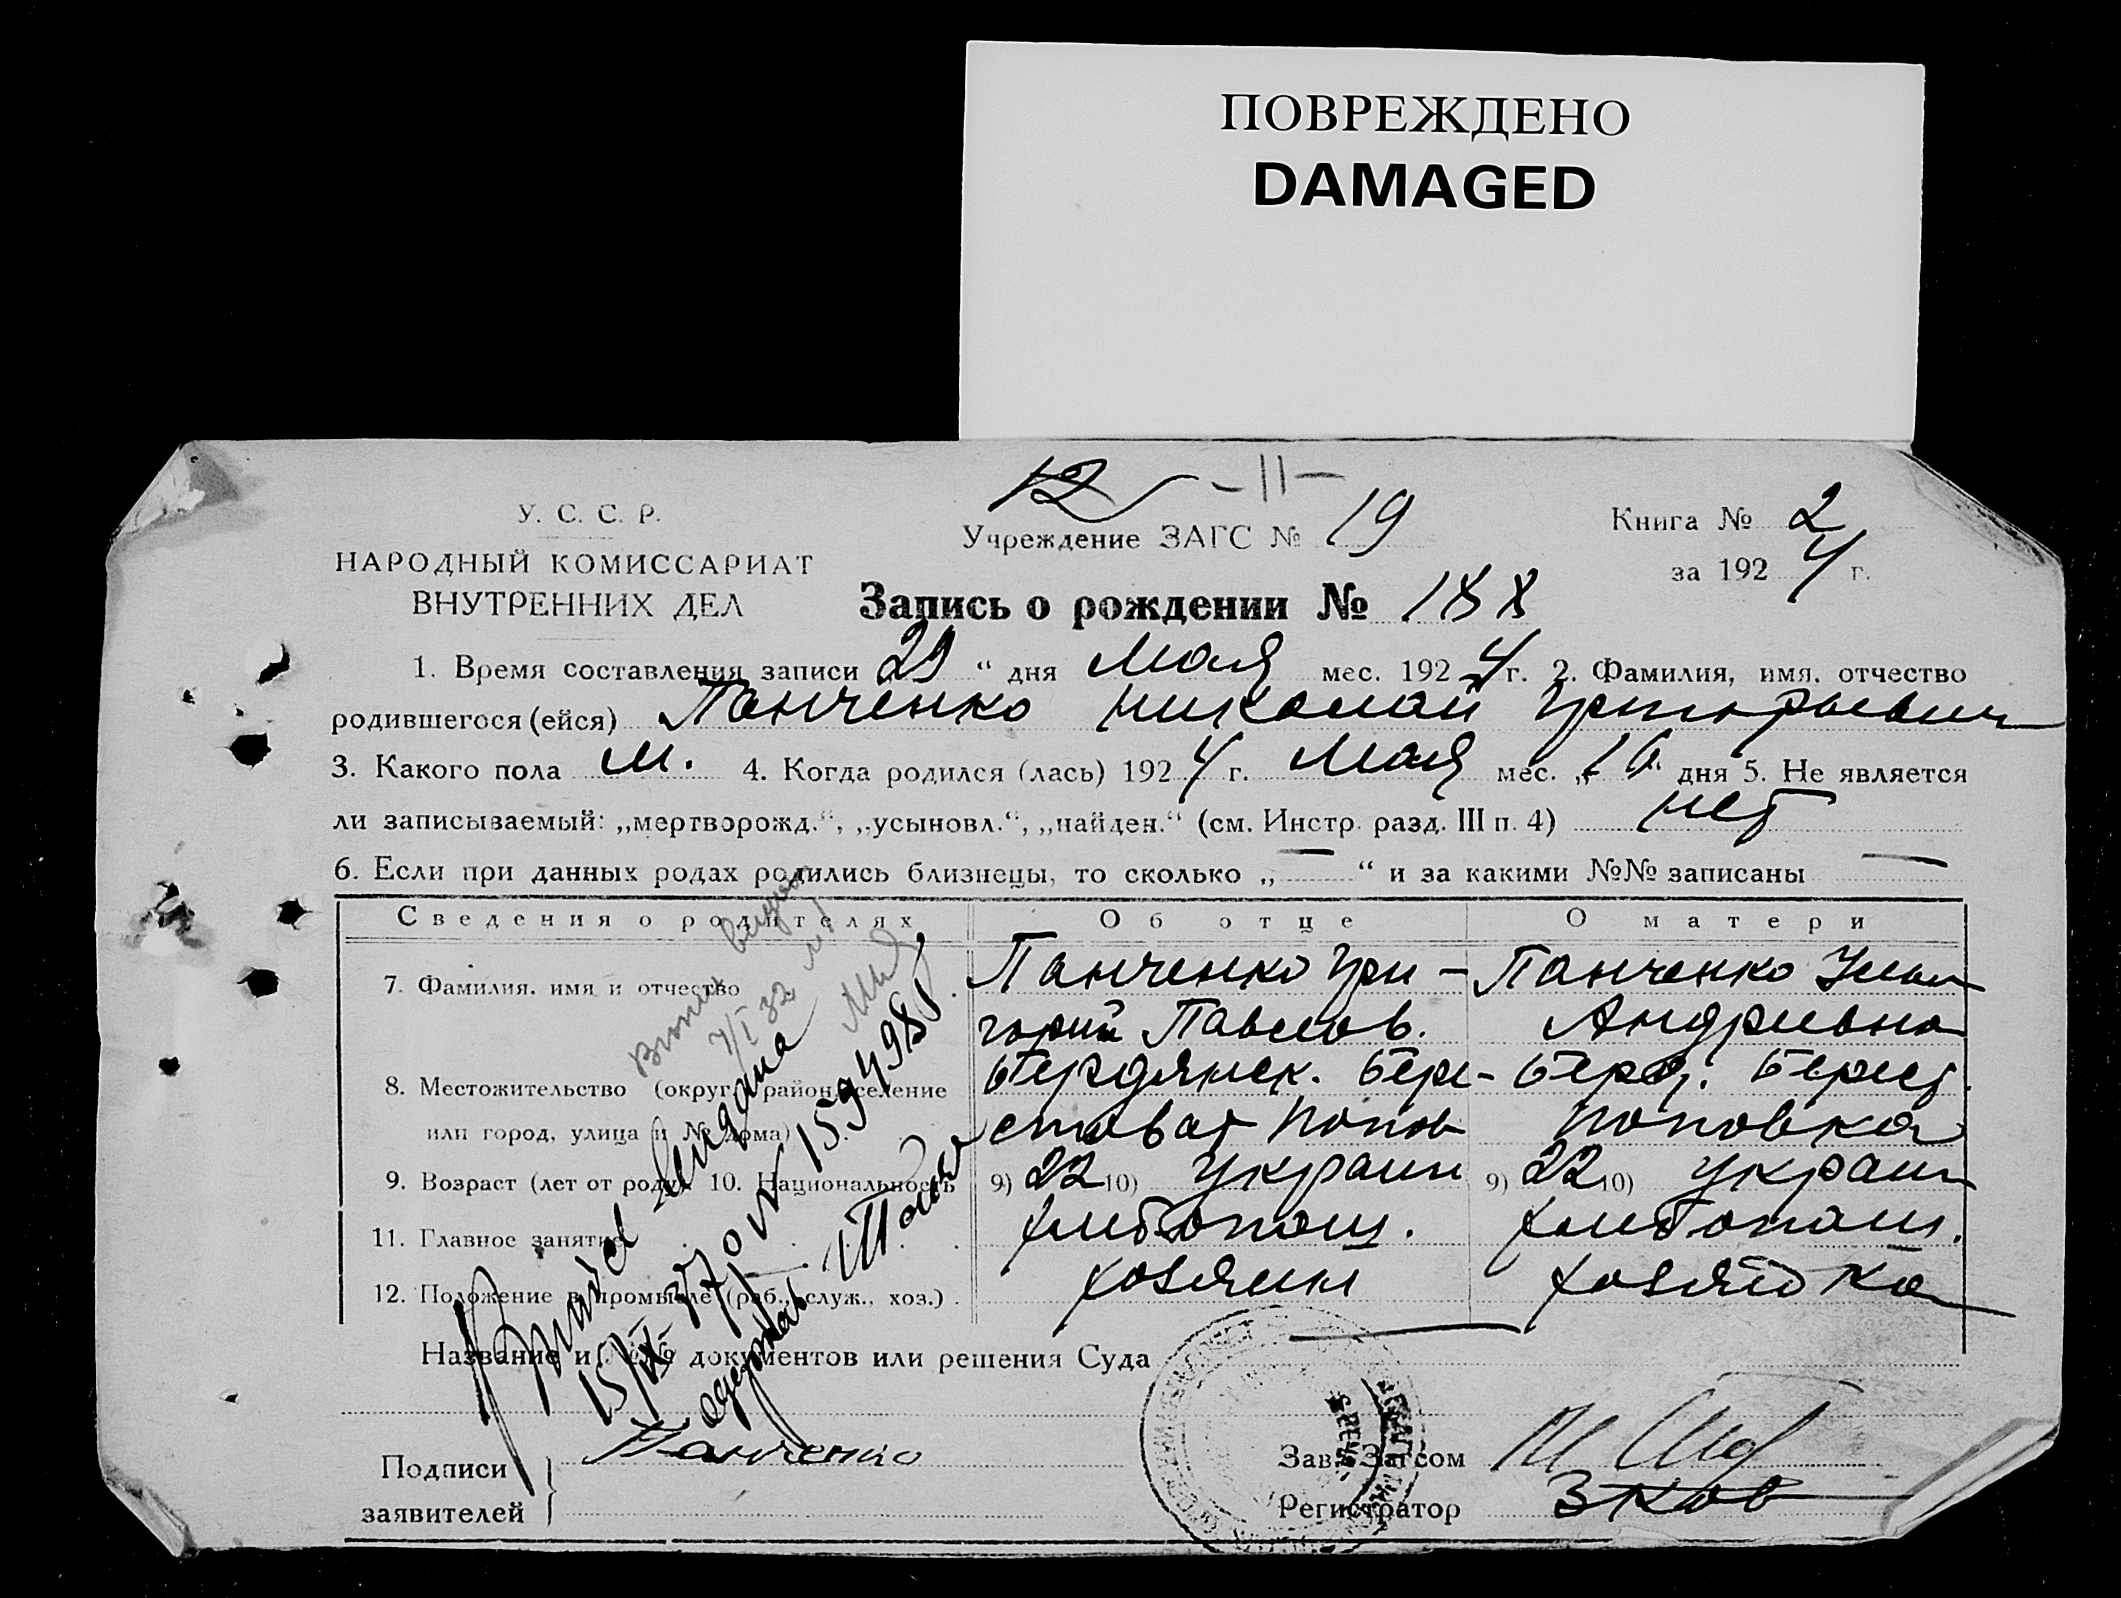 ПОВРЕЖДЕНО
DAMAGED
12 - 11 -
У. С. С. Р.
Учреждение ЗАГС № 19
Книга № 2
НАРОДНЫЙ КОМИССАРИАТ
за 1924 г.
ВНУТРЕННИХ ДЕЛ
Запись о рождении № 188
1. Время составления записи 29 “ дня Мая мес. 1924 г. 2. Фамилия, имя, отчество
родившегося (ейся) Панченко Николай Григорьевич
3. Какого пола м. 4. Когда родился (лась) 1924 г. Мая мес. „16“ дня 5. Не является
ли записываемый: „мертворожд.“, „усыновл.“, „найден.“ (см. Инстр. разд. III п. 4) нет
6. Если при данных родах родились близнецы, то сколько „ — “ и за какими №№ записаны —
Сведения о родителях Об отце О матери
7. Фамилия, имя и отчество Панченко Гри- Панченко
горий Павлов. Андриевна
8. Местожительство (округ, район, селение Бердянск. Бере- Берд. Берест.
или город, улица и № дома) стоват Попов Поповка
9. Возраст (лет от роду) 10. Национальность 9) 22 10) украин 9) 22 10) украин
11. Главное занятие хлебопаш. хлебопаш.
12. Положение в промысле (раб., служ., хоз.) хозяин хозяйка
Название и №№ документов или решения Суда
15/IX-37 № 1594981
одержав
Подписи Панченко
заявителей
Зав. Загсом
Регистратор